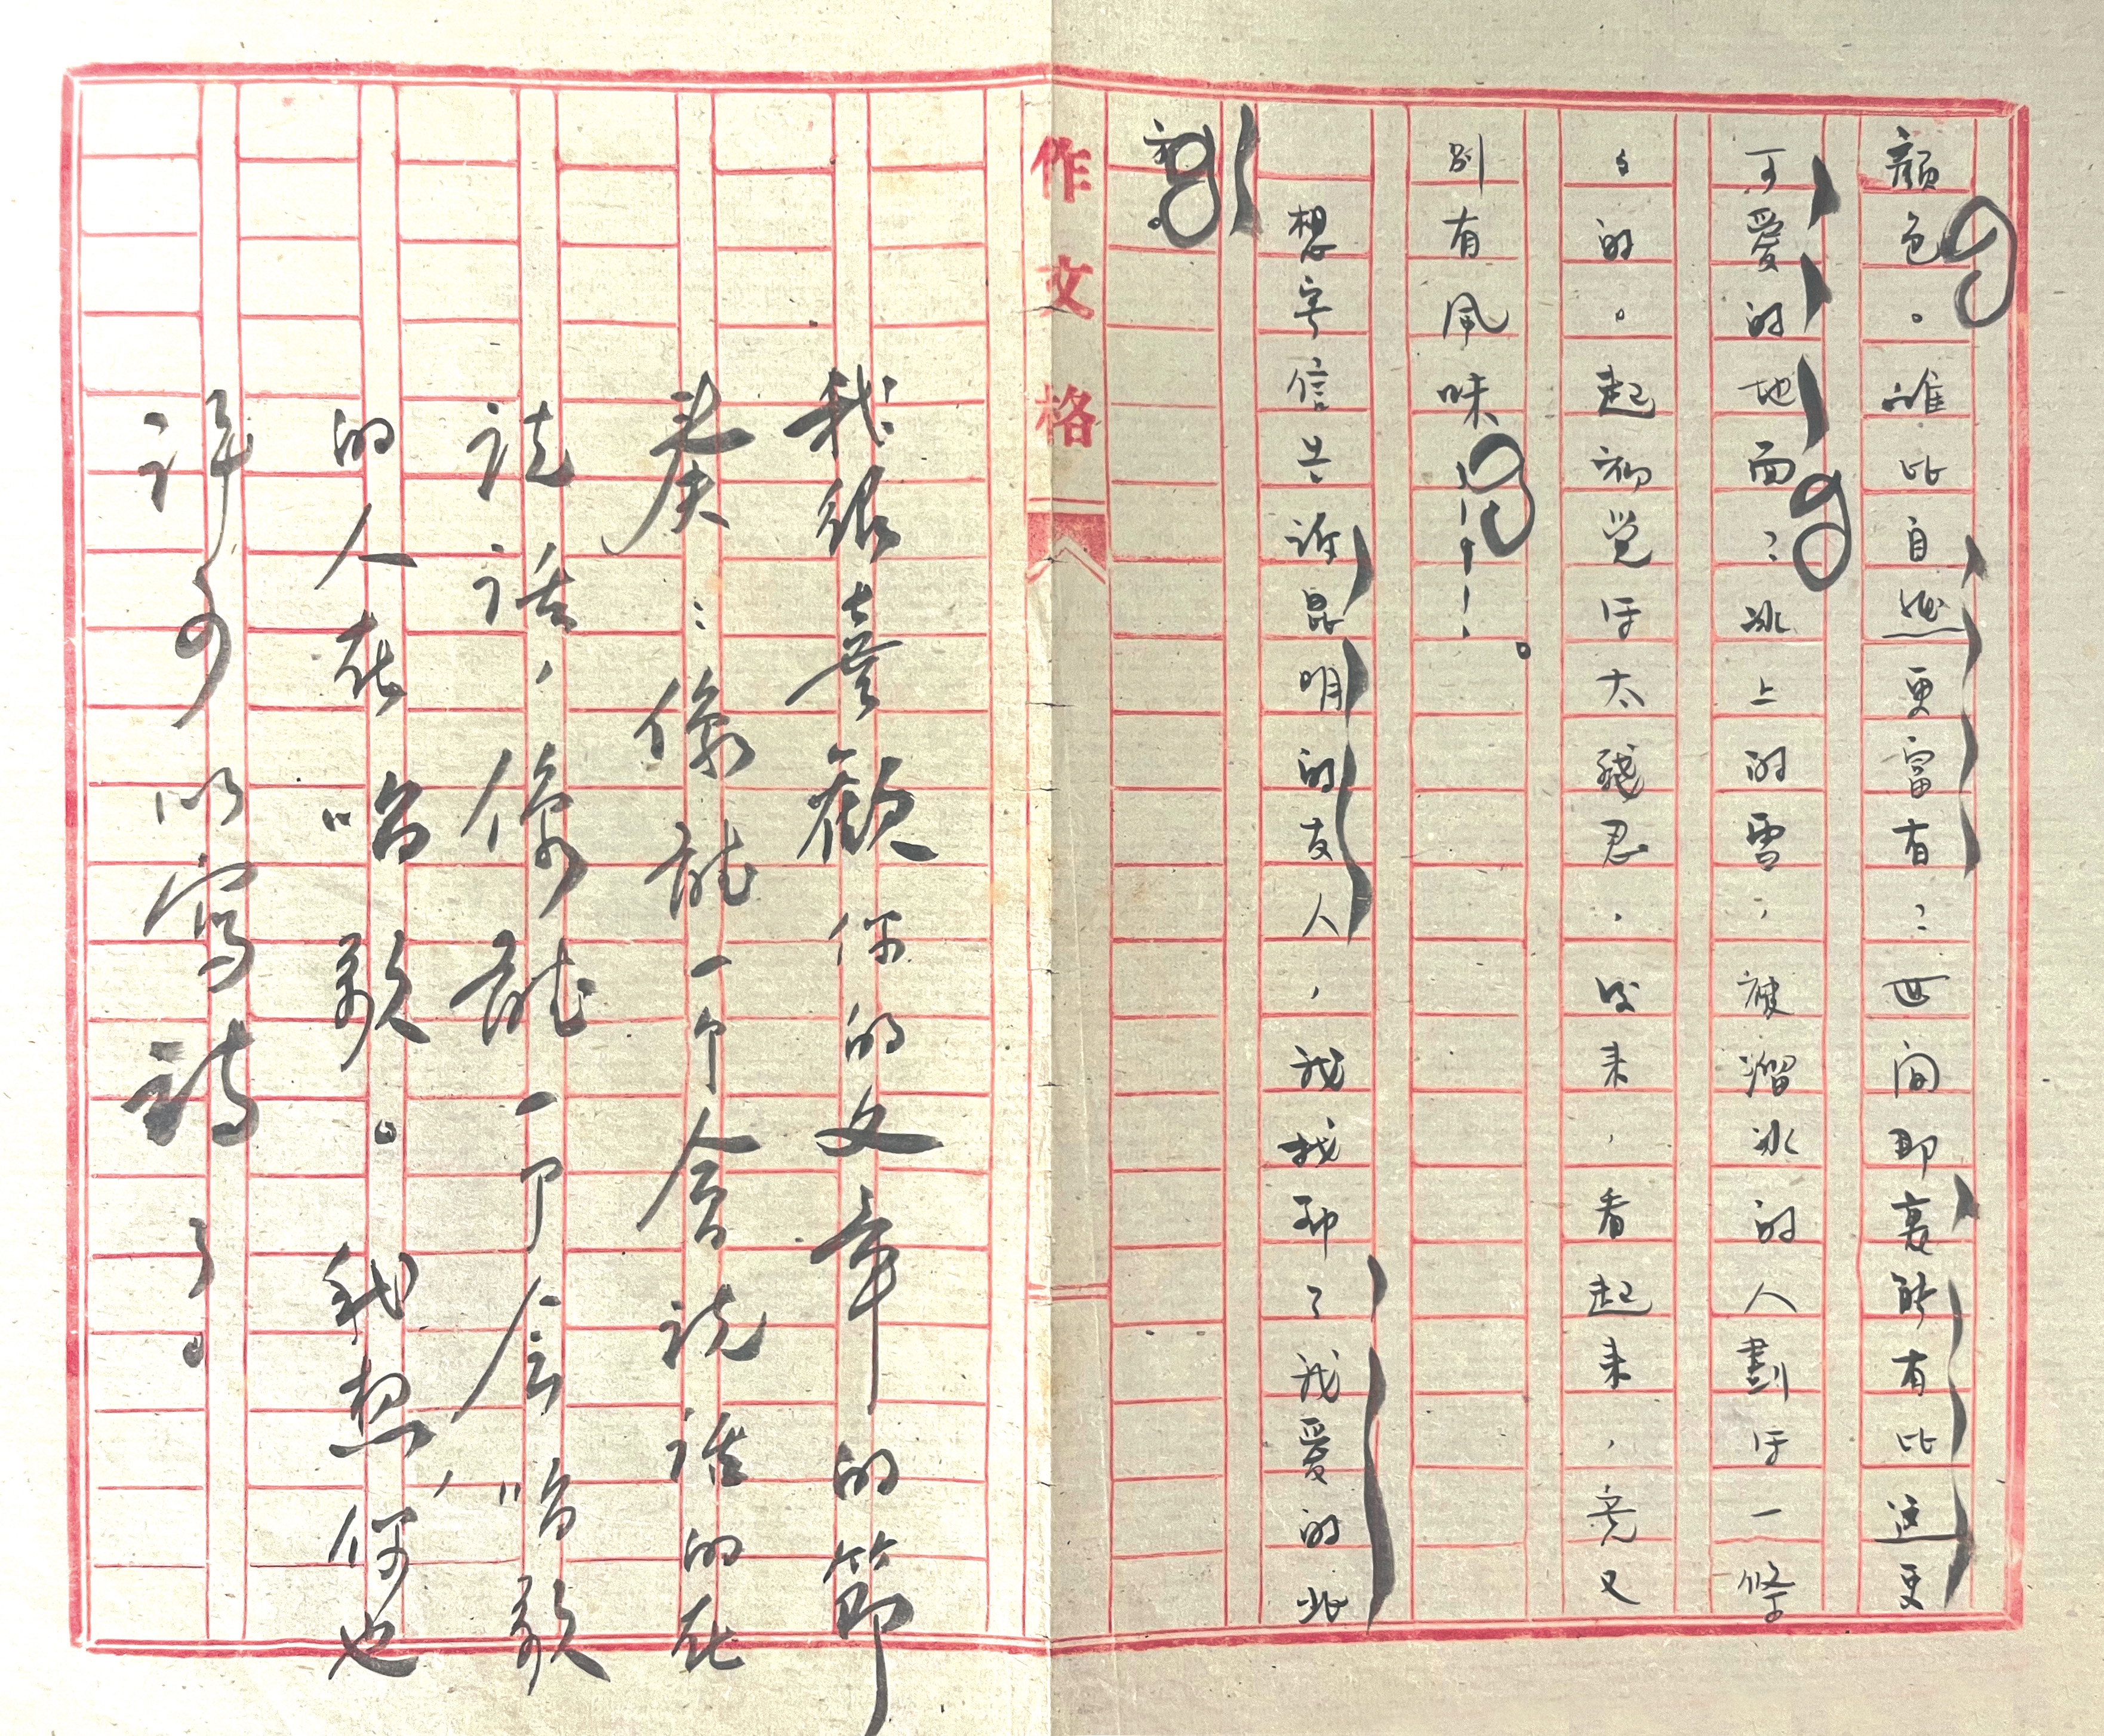 顏色。誰比自然更富有？世间那裏能有比这更
可爱的地面？冰上的雪，被溜冰的人劃成一條
々的。起初覚得太殘忍，後来，看起来，竟又
别有風味！！！！
想寄信告訴昆明的友人，我找那了我爱的北
平。
作文格
我很喜歡你的文章的節
奏：像能一个會說話的在
說話，像能一个會唱歌
的人在唱歌。我想，你也
許可以寫詩了。